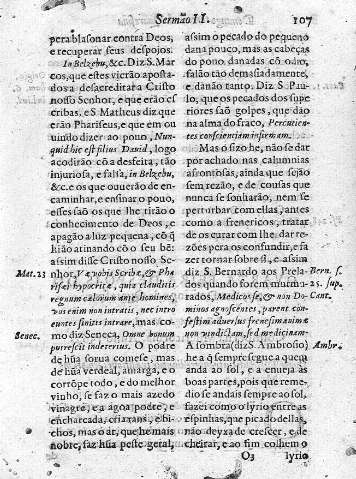 Sermão II. 107
pera blasonar contra Deos,
e recuperar seus despojos.
In Belzebu, &c. Diz S. Mar
cos, que estes vieraõ aposta-
dos a desacreditar a Cristo
nosso Senhor, e que eraõ es
cribas. E S. Matheus diz que
eraõ Phariseus, que em ou
uindo dizer ao pouo, Nun-
quid hic est filius Dauid, logo
acodiraõ cõ a desfeita, taõ
injuriosa, e falsa, in Belzebu,
&c. e os que ouueraõ de en-
caminhar, e ensinar o pouo,
esses saõ os que lhe tiraõ o
conhecimento de Deos, e
apagão a luz pequena, cõ q̃
hiaõ atinando cõ o seu bẽ:
assim disse Cristo nosso Se-
Mat. 23 nhor, Væ vobis Scribæ, & Pha
risæi hypocritæ, quia clauditis
regnum cælorum ante homines,
vos enim non intratis, nec intro
euntes sinitis intrare, mas co-
Senec. mo diz Seneca, Omne bonum
putrescit in deterius. O podre
de hũa souua comese, mas
de hũa verdeal, amarga, e o
corrõpe todo, e do melhor
vinho, se faz o mais azedo
vinagre, e a agoa podre, e
encharcada, cria rans, e bi-
chos, mas o ar, que he mais
nobre, faz hũa peste geral,
assim o pecado do pequeno
dana pouco, mas as cabeças
do pouo danadas cõ odio,
falaõ taõ demasiadamente,
e danão tanto. Diz S. Pau-
lo, que os pecados dos supe
riores saõ golpes, que dão
na alma do fraco, Percutien-
tes conscientiam infirmam.
Mas o sizo he, não se dar
por achado nas calumnias
afrontosas, ainda que sejão
sem rezão, e de cousas que
nunca se sonharão, nem se
perturbar com ellas, antes
como a freneticos, tratar
de os curar com lhe dar re-
zões pera os confundir, e fa
zer tornar sobre si, e assim
diz S. Bernardo aos Prela- Bern. s.
dos quando forem murmu- 25. sup.
rados, Medicos se, & non Do- Cant.
minos agnoscentes, parent con-
festim aduersus frenesim animæ
non vindictam, sed medicinam.
A sombra (diz S. Ambrosio) Ambr.
he a q̃ sempre segue a quem
anda ao sol, e a enueja as
boas partes, pois que reme-
dio se andais sempre ao sol,
fazei como o lyrio entre as
espinhas, que picado dellas,
não deyxa de crescer, e de
cheirar, e ao fim colhem o
O3 lyrio